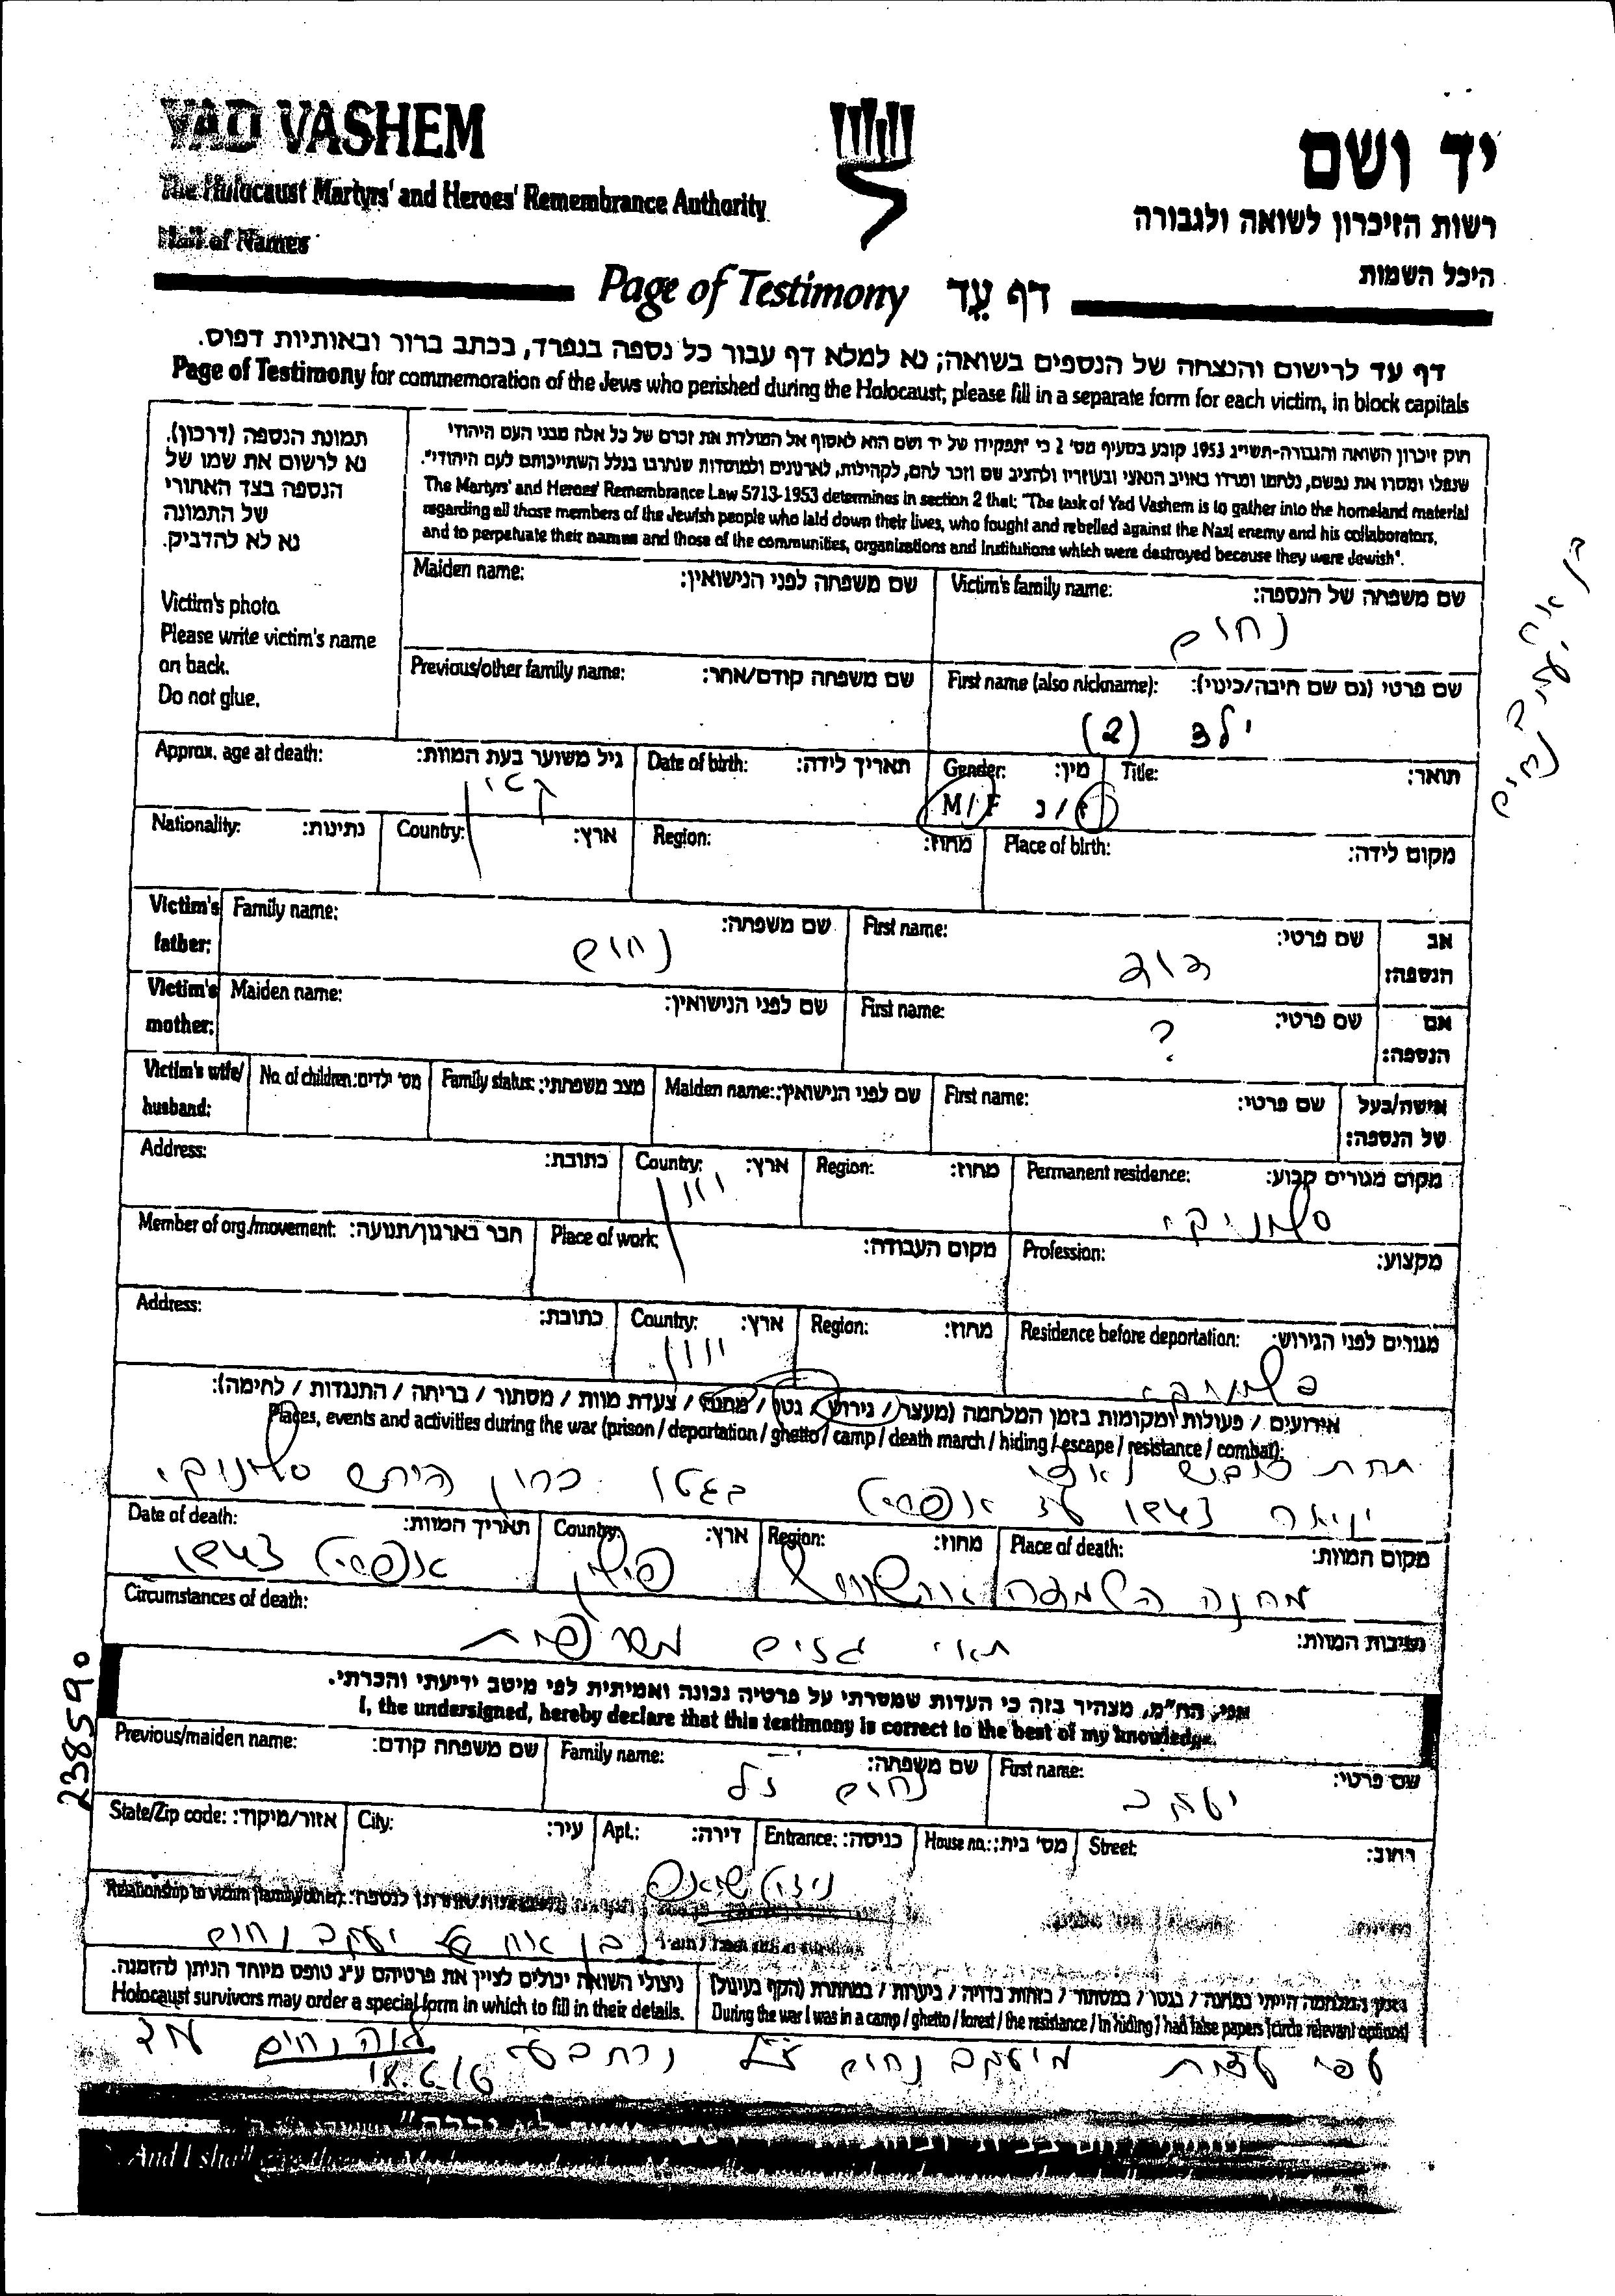 YAD VASHEM
יד ושם
The Holocaust Martyrs' and Heroes' Remembrance Authority
רשות הזיכרון לשואה ולגבורה
Hall of Names
היכל השמות
Page of Testimony דף עֵד
דף עד לרישום והנצחה של הנספים בשואה; נא למלא דף עבור כל נספה בנפרד, בכתב ברור ובאותיות דפוס.
Page of Testimony for commemoration of the Jews who perished during the Holocaust; please fill in a separate form for each victim, in block capitals
תמונת הנספה (דרכון).
נא לרשום את שמו של
הנספה בצד האחורי
של התמונה
נא לא להדביק.
Victim's photo.
Please write victim's name
on back.
Do not glue.
חוק זיכרון השואה והגבורה-תשי"ג 1953 קובע בסעיף מס' 2 כי "תפקידו של יד ושם הוא לאסוף אל המולדת את זכרם של כל אלה מבני העם היהודי
שנפלו ומסרו את נפשם, נלחמו ומרדו באויב הנאצי ובעוזריו ולהציב שם וזכר להם, לקהילות, לארגונים ולמוסדות שנחרבו בגלל השתייכותם לעם היהודי".
The Martyrs' and Heroes' Remembrance Law 5713-1953 determines in section 2 that: "The task of Yad Vashem is to gather into the homeland material
regarding all those members of the Jewish people who laid down their lives, who fought and rebelled against the Nazi enemy and his collaborators,
and to perpetuate their names and those of the communities, organizations and institutions which were destroyed because they were Jewish".
Victim's family name: שם משפחה של הנספה:
נחום
Maiden name: שם משפחה לפני הנישואין:
First name (also nickname): שם פרטי (גם שם חיבה/כינוי):
ילד (2)
Previous/other family name: שם משפחה קודם/אחר:
בן אח יעקב נחום
Title: תואר:
Gender: מין:
M / F ז / נ
Date of birth: תאריך לידה:
Approx. age at death: גיל משוער בעת המוות:
קטין
Place of birth: מקום לידה:
Region: מחוז:
Country: ארץ:
Nationality: נתינות:
Victim's father: אב הנספה:
First name: שם פרטי:
דוד
Family name: שם משפחה:
נחום
Victim's mother: אם הנספה:
First name: שם פרטי:
?
Maiden name: שם לפני הנישואין:
Victim's wife/ husband: אישה/בעל של הנספה:
First name: שם פרטי:
Maiden name: שם לפני הנישואין:
Family status: מצב משפחתי:
No. of children: מס' ילדים:
Permanent residence: מקום מגורים קבוע:
סלוניקי
Region: מחוז:
Country: ארץ:
יוון
Address: כתובת:
Profession: מקצוע:
Place of work: מקום העבודה:
Member of org./movement: חבר בארגון/תנועה:
Residence before deportation: מגורים לפני הגירוש:
סלוניקי
Region: מחוז:
Country: ארץ:
יוון
Address: כתובת:
אירועים / פעולות ומקומות בזמן המלחמה (מעצר / גירוש / גטו / מחנה / צעדת מוות / מסתור / בריחה / התנגדות / לחימה):
Places, events and activities during the war (prison / deportation / ghetto / camp / death march / hiding / escape / resistance / combat):
תחת כובש נאצי בגטו ברון הירש סלוניקי
ינואר 1943 עד אפריל
Place of death: מקום המוות:
מחנה השמדה אושוויץ
Region: מחוז:
Country: ארץ:
פולין
Date of death: תאריך המוות:
אפריל 1943
Circumstances of death: נסיבות המוות:
תאי גזים משרפות
אני, הח"מ, מצהיר בזה כי העדות שמסרתי על פרטיה נכונה ואמיתית לפי מיטב ידיעתי והכרתי.
I, the undersigned, hereby declare that this testimony is correct to the best of my knowledge.
238590
First name: שם פרטי:
יעקב
Family name: שם משפחה:
נחום ז"ל
Previous/maiden name: שם משפחה קודם:
Street: רחוב:
House no.: מס' בית:
Entrance: כניסה:
Apt.: דירה:
City: עיר:
State/Zip code: אזור/מיקוד:
ניצול שואה
Relationship to victim (family/other):
בן אח של יעקב נחום
בזמן המלחמה הייתי במחנה / בגטו / במסתור / בזהות בדויה / ביערות / במחתרת (הקף בעיגול)
During the war I was in a camp / ghetto / forest / the resistance / in hiding / had false papers (circle relevant options)
ניצולי השואה יכולים לציין את פרטיהם ע"ג טופס מיוחד הניתן להזמנה.
Holocaust survivors may order a special form in which to fill in their details.
עפי עדות מיעקב נחום ז"ל
And I shall give them in My house